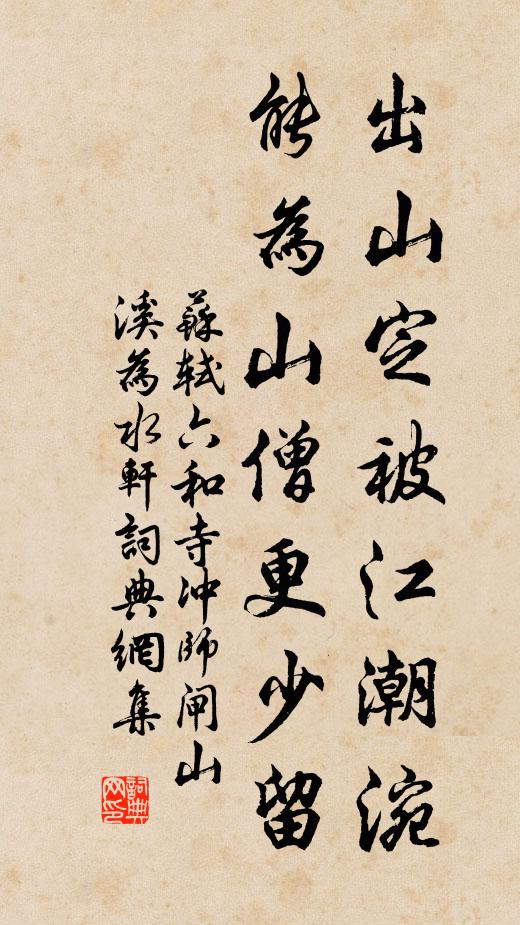 出山定被江潮涴
能為山僧更少留
蘇軾六和寺冲師閘山
溪為水軒詞典網集
詞典
网印